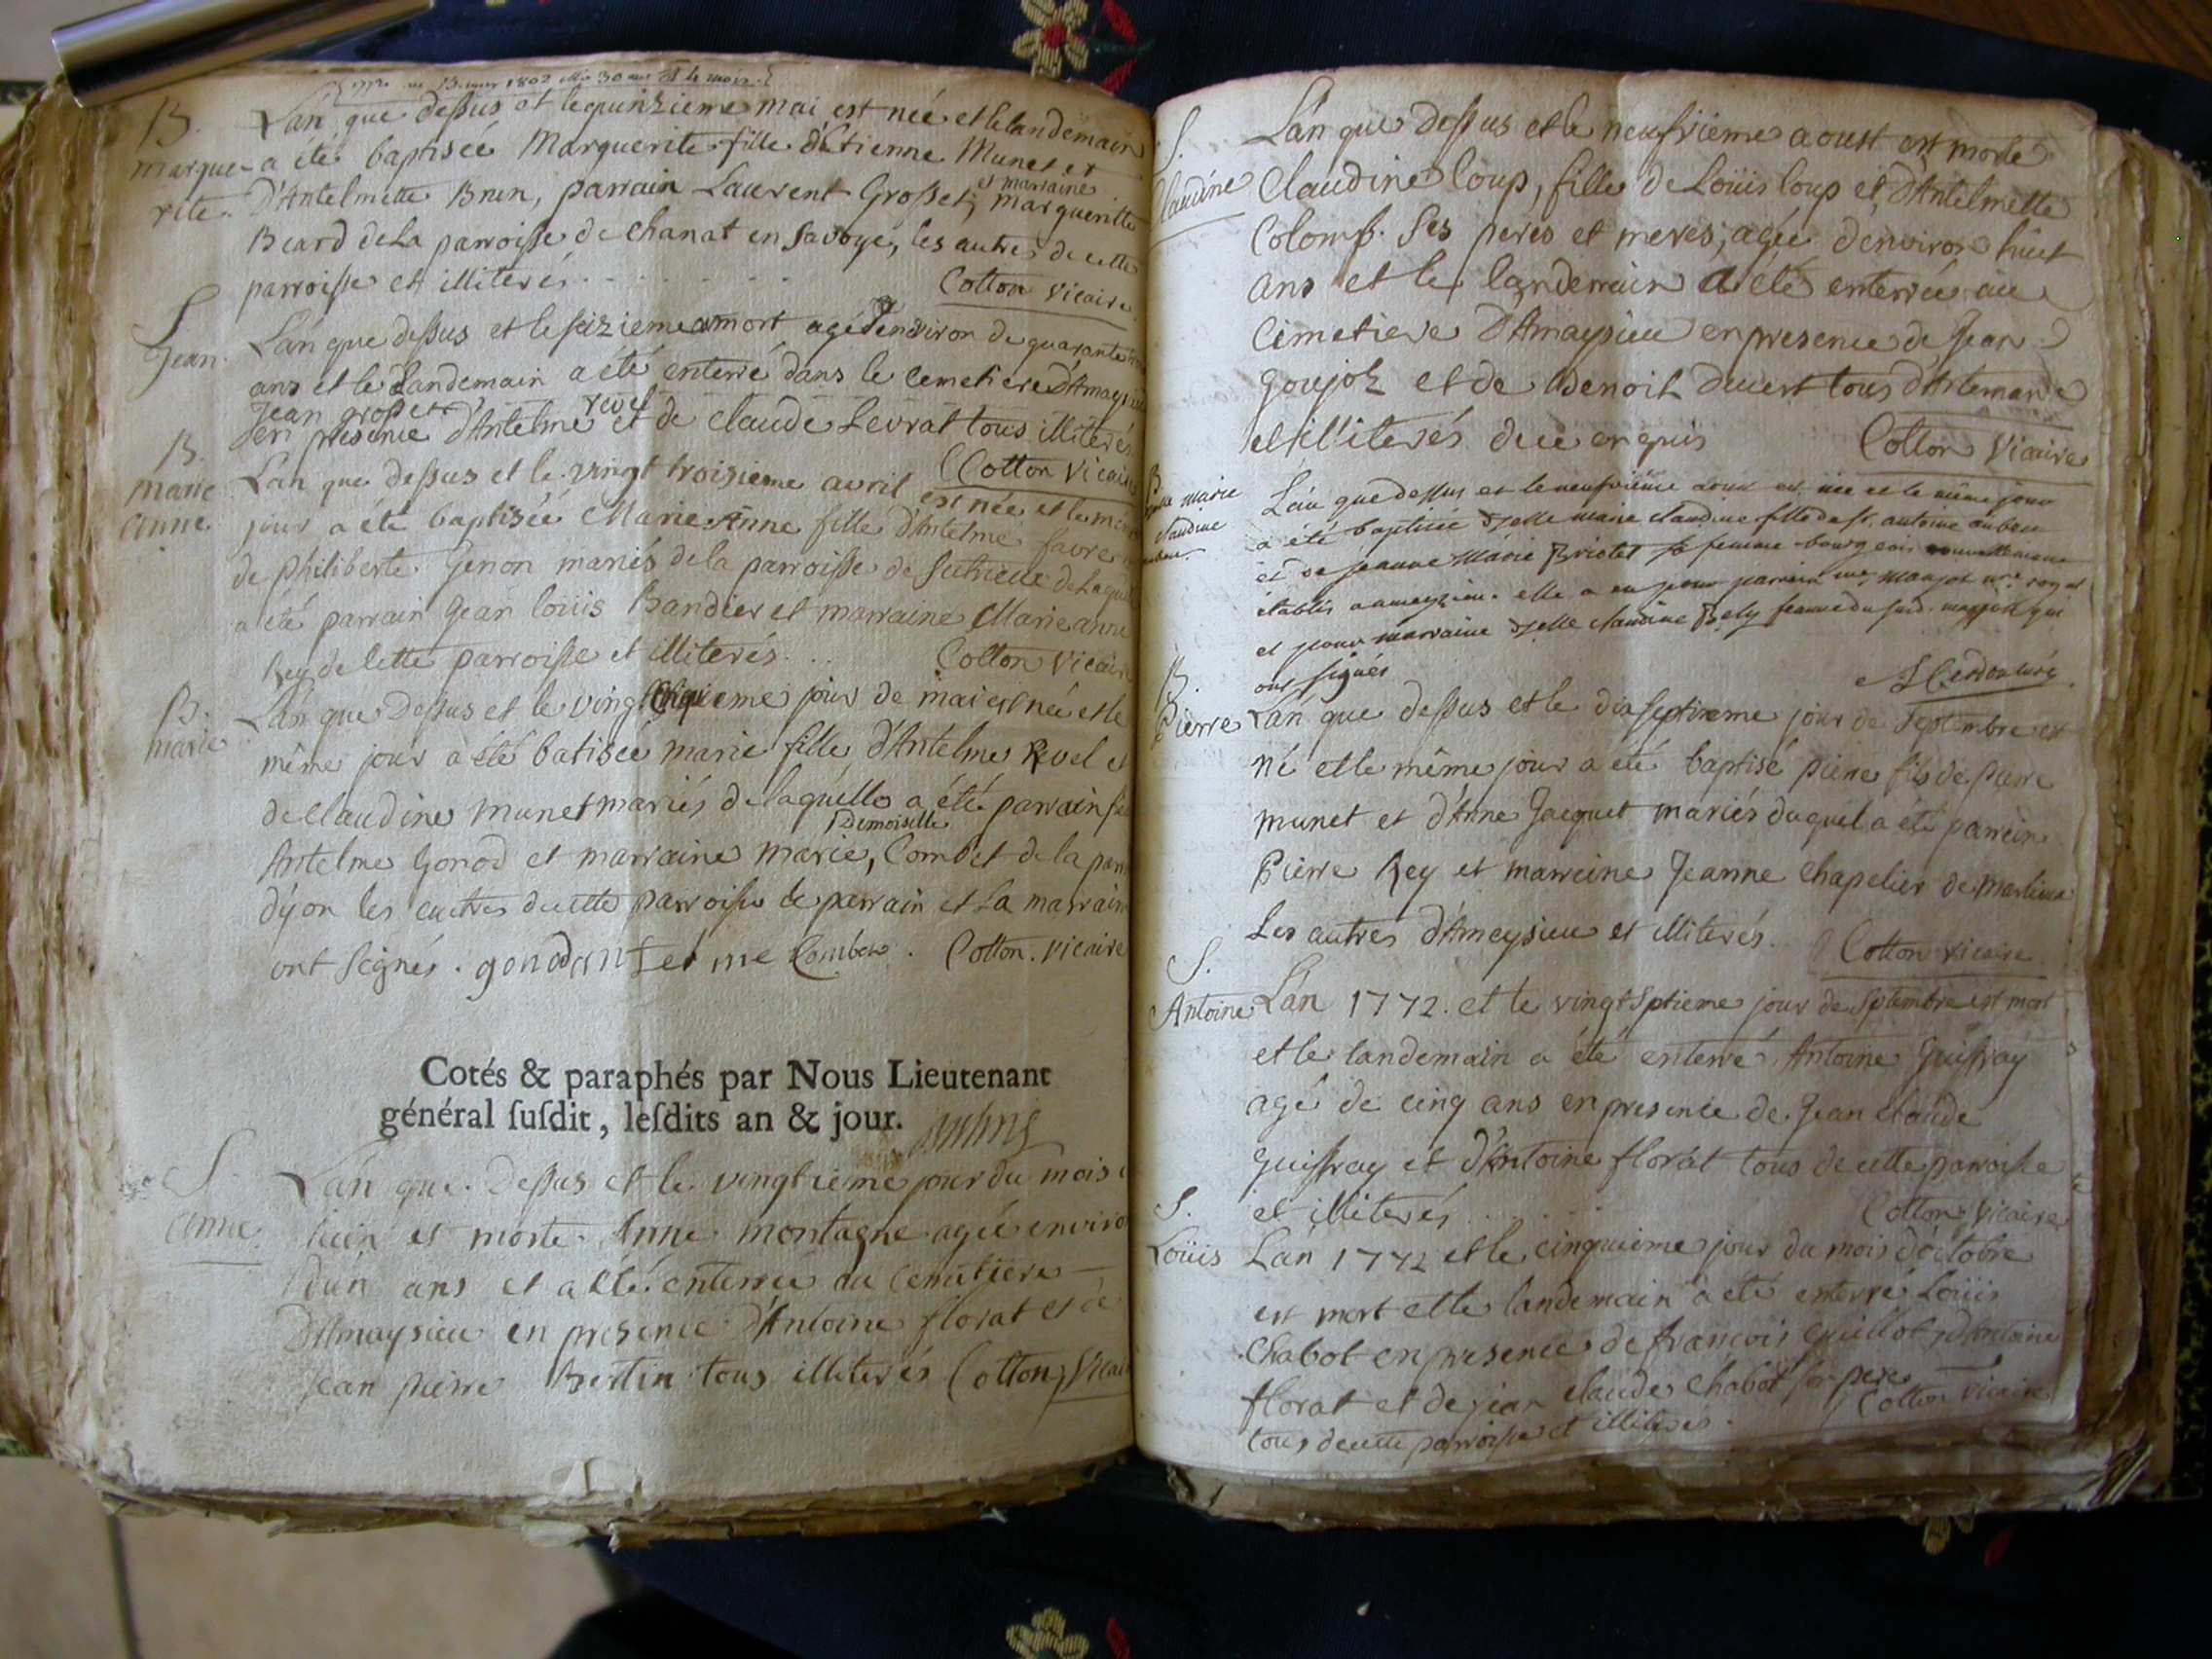 B.
Lan que dessus et le quinzieme mai est née et le landemain
Margue- a été baptisée Marguerite fille d'Etienne Munet et
rite. D'Antelmette Brun, parrain Laurent Grosset, et marraine Margueritte
Beard de la parroisse de Chanat en Savoye, les autres de cette
parroisse et illiterés. Cotton Vicaire
S
Jean. Lan que dessus et le seizieme mort agé d'environ de quarante
ans et le landemain a été enterré dans le cemetiere d'Amaysieu
Jean grosset
en presence d'Antelme revel et de Claude Levrat tous illiterés
B. Cotton Vicaire
Marie Lan que dessus et le vingt troisieme avril est née et le même
Anne. jour a été baptisée Marie Anne fille d'Antelme favre
de philiberte Genon mariés de la parroisse de Sutrieu de laquelle
a été parrain Jean loüis Bandier et marraine Marie anne
Rey de cette parroisse et illiterés. Cotton Vicaire
B. Lan que Dessus et le vingt jour de mai est née et le
marie même jour a été batisée marie fille d'Antelme Revel et
de Claudine munet mariés de laquelle a été parrain
Antelme Gonod et marraine marie, Demoiselle Combet de la parr
d'yon les autres de cette parroisse le parrain et la marraine
ont signés. gonod me Combet. Cotton. Vicaire
Cotés & paraphés par Nous Lieutenant
général ſuſdit, leſdits an & jour.
S. Lan que Dessus et le vingtieme jour du mois
Anne. juin est morte Anne montagne agée environ
d'un ans et a été enterrée au Cemetiere
D'Amaysieu en presence d'Antoine florat et de
jean pierre Bertin tous illiterés Cotton, Vicaire
S. Lan que dessus et le neufvieme aoust est morte
Claudine Claudine loup, fille de Loüis loup et d'Antelmette
Colomb. Ses peres et meres, agée d'environ huit
ans et le landemain a été enterrée au
Cimetiere D'Amaysieu en presence de Jean
Goujoz et de Benoit Ducert tous d'Artemare
et illiterés de ce enquis Cotton Vicaire
marie Lan que dessus et le neufvieme aout est née et le même jour
claudine a été baptisée Delle marie claudine fille de Sr. antoine aubert
et de jeanne Marie Briolet sa femme bourgeois nouvellement
établis a ameyzieu. elle a eu pour parrain Mre Manjot nre royal
et pour marraine Delle claudine Rely femme du susd. qui
ont signés
B.
Pierre Lan que dessus et le dix septieme jour de Septembre est
né et le même jour a été baptisé pierre fils de pierre
munet et d'Anne Jacquet mariés duquel a été parrein
Pierre Rey et marreine Jeanne Chapelier de
Les autres d'Ameysieu et illiterés. Cotton Vicaire
S.
Antoine Lan 1772. et le vingt Septieme jour de septembre est mort
et le landemain a été enterré Antoine Guiffray
agé de cinq ans en presence de Jean Claude
Guiffray et d'Antoine florat tous de cette parroisse
S. et illiterés Cotton Vicaire
Loüis Lan 1772 et le cinquieme jour du mois d'octobre
est mort et le landemain a été enterré Loüis
Chabot en presence de françois Guillot, d'Antoine
florat et de jean claude Chabot son pere
tous de cette parroisse et illiterés. Cotton Vicaire